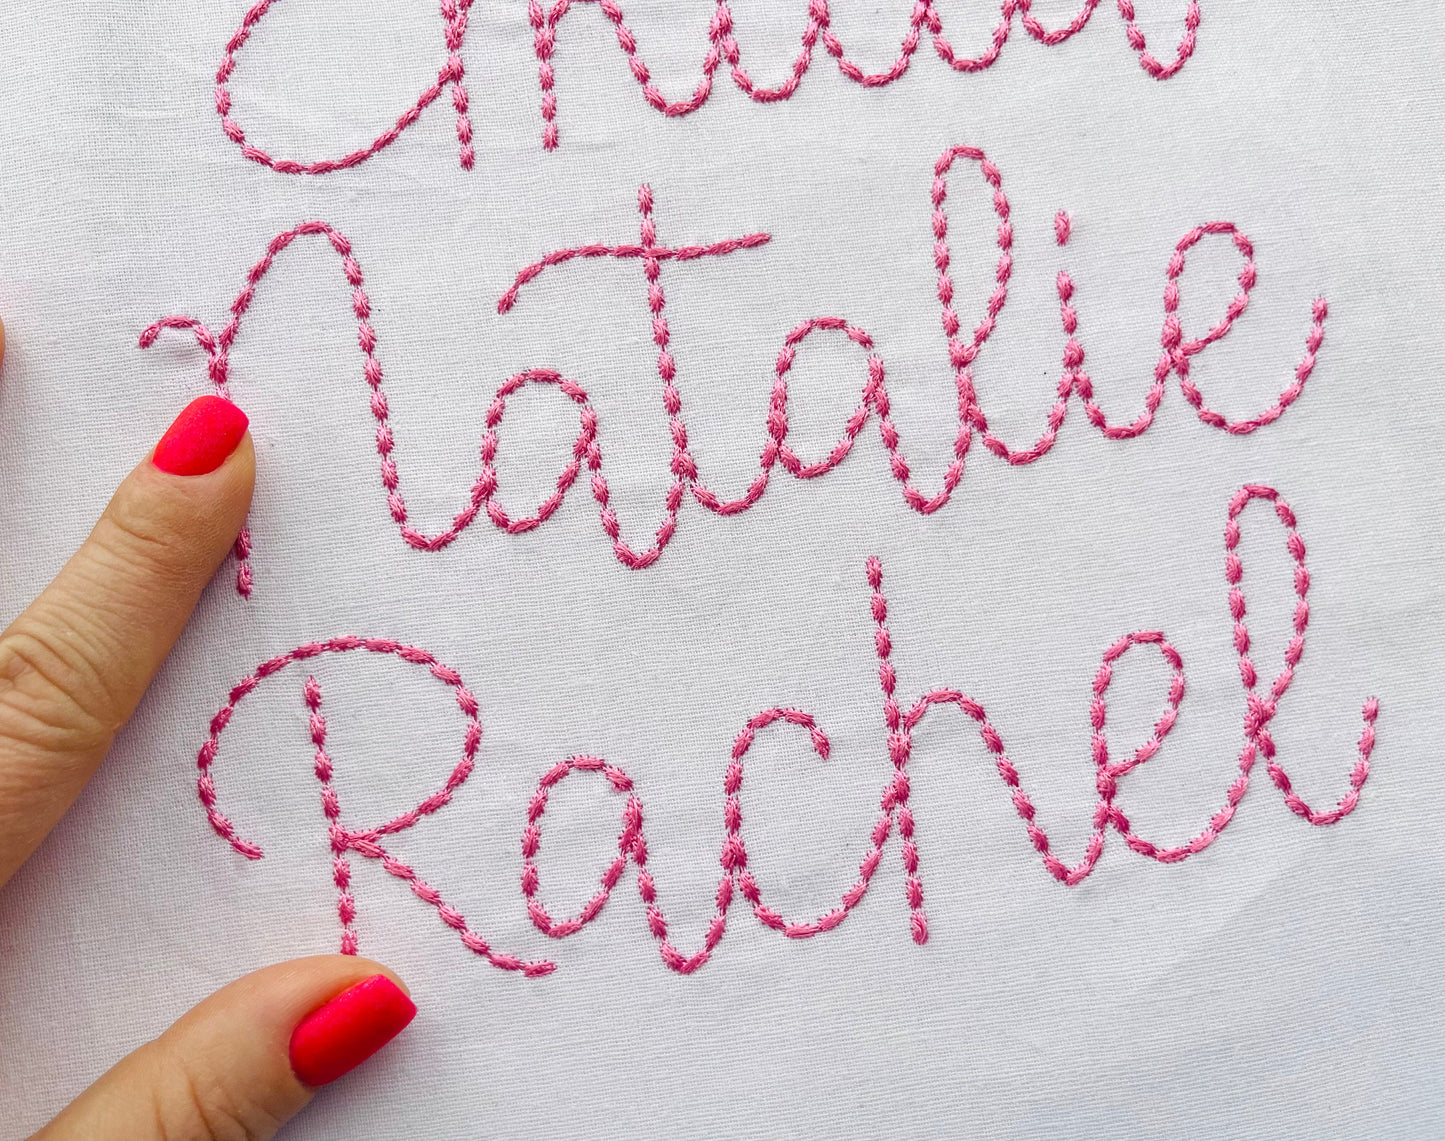 Natalie
Rachel